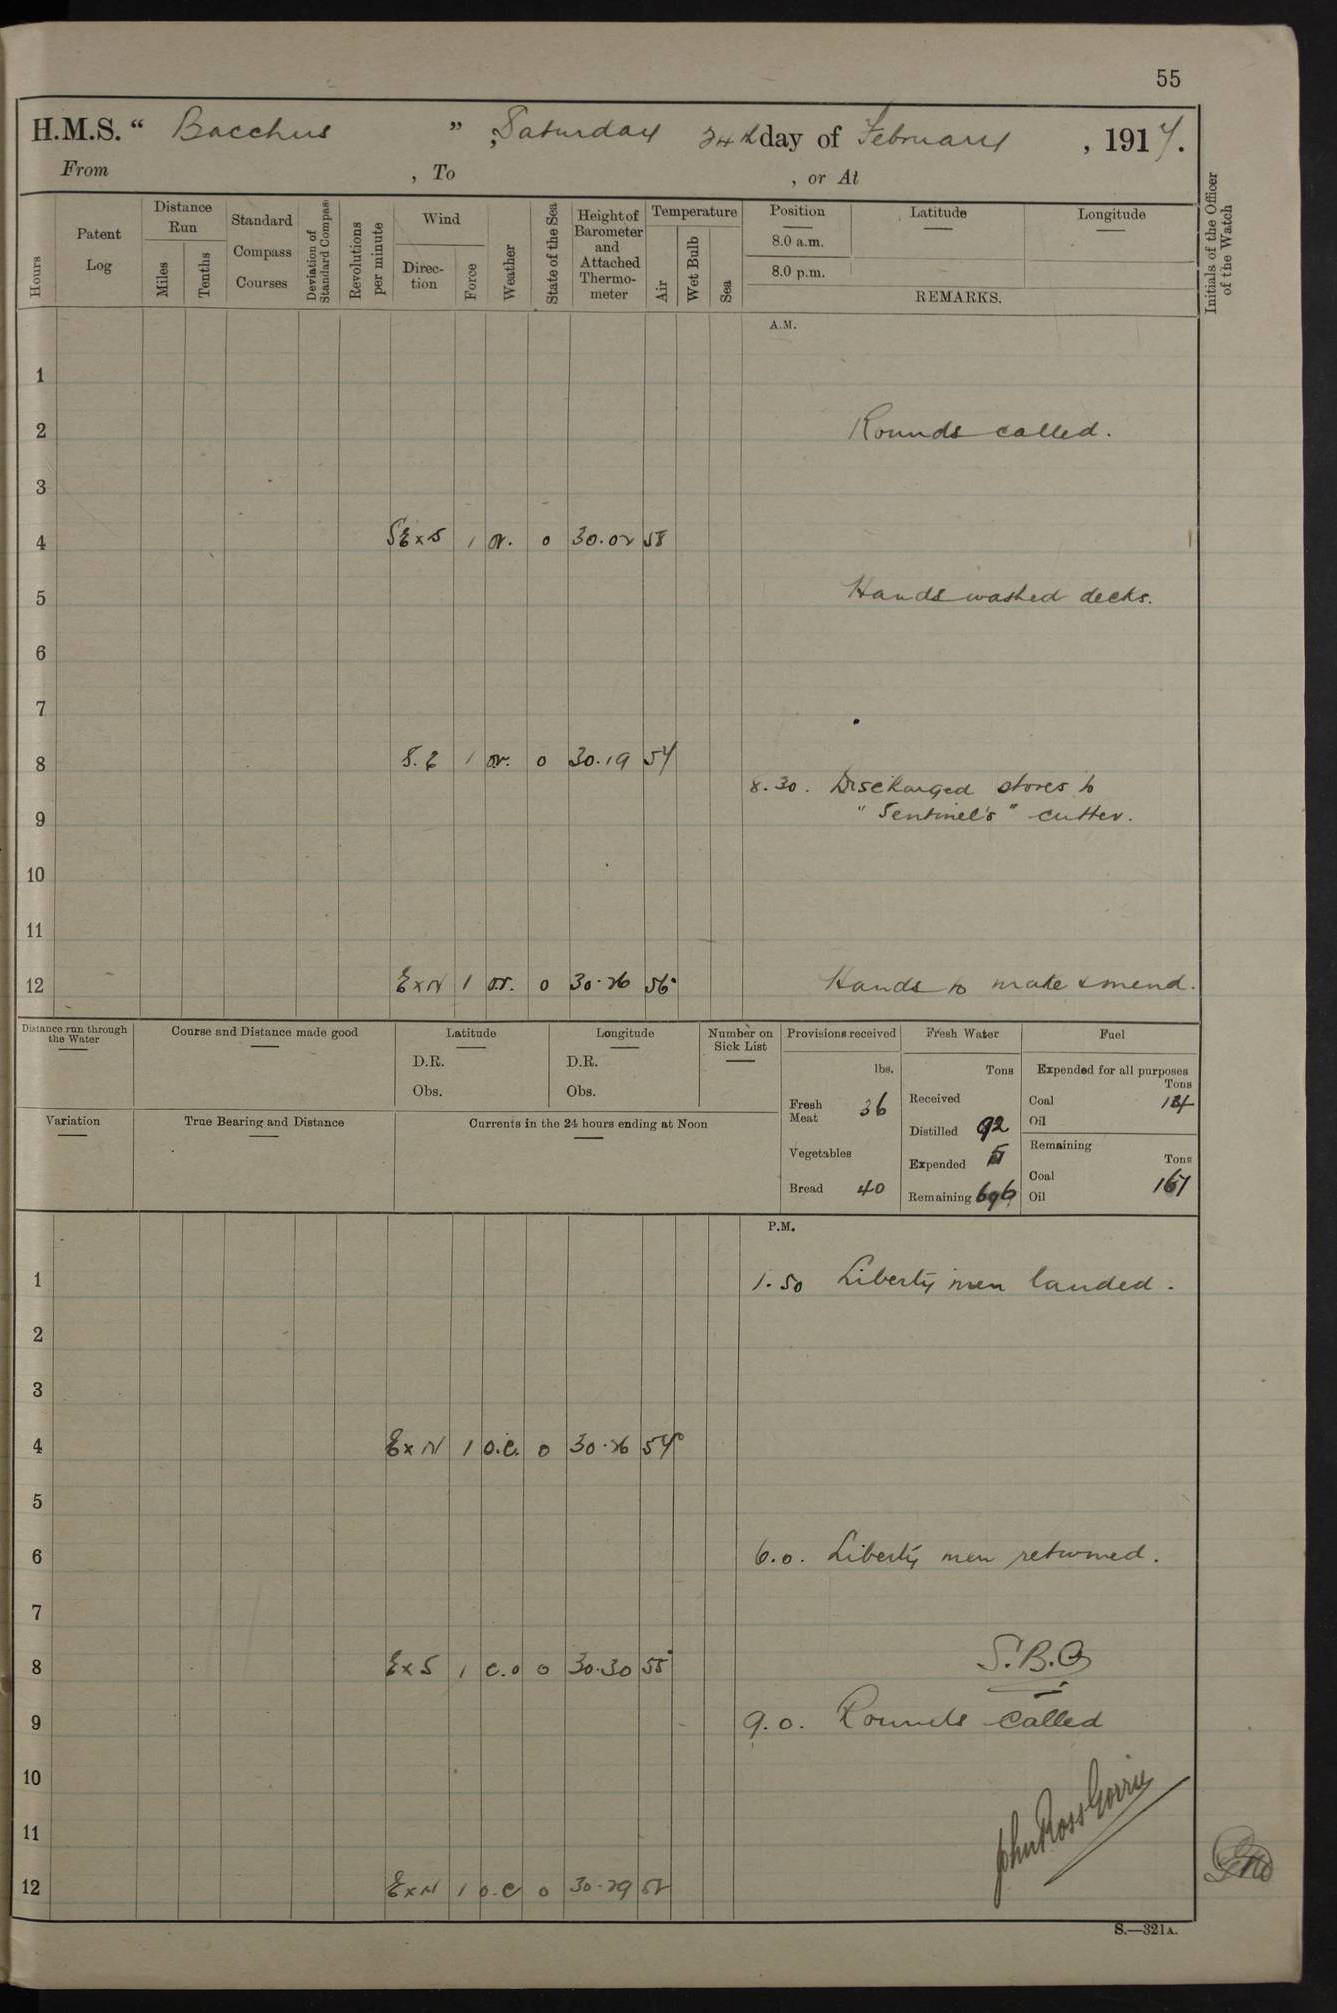 55
H.M.S. “ Bacchus ” , Saturday 24th day of February , 1917.
From , To , or At
Hours
Patent Log
Distance Run
Miles
Tenths
Standard Compass Courses
Deviation of Standard Compass
Revolutions per minute
Wind
Direction
Force
Weather
State of the Sea
Height of Barometer and Attached Thermometer
Temperature
Air
Wet Bulb
Sea
Position Latitude Longitude
8.0 a.m.
8.0 p.m.
REMARKS.
Initials of the Officer of the Watch
A.M.
1
2 Rounds called.
3
4 SExS 1 or. 0 30.02 58
5 Hands washed decks.
6
7
8 S.E 1 or. 0 30.19 54
8.30. Discharged stores to
9 "Sentinel's" cutter.
10
11
12 ExN 1 or. 0 30.26 56° Hands to make & mend.
Distance run through the Water
Course and Distance made good
Latitude
D.R.
Obs.
Longitude
D.R.
Obs.
Number on Sick List
Variation
True Bearing and Distance
Currents in the 24 hours ending at Noon
Provisions received
lbs.
Fresh Meat 36
Vegetables
Bread 40
Fresh Water
Tons
Received
Distilled 92
Expended
Remaining 696
Fuel
Expended for all purposes
Tons
Coal
Oil
Remaining
Tons
Coal 167
Oil
P.M.
1 1.50 Liberty men landed.
2
3
4 ExN 1 o.c. 0 30.26 54°
5
6 6.0. Liberty men returned.
7
8 ExS 1 c.o 0 30.30 55° S.B.O
9 9.0. Rounds called
10
11 John Ross Gorrie
12 ExN 1 o.c 0 30.29 52
S.—321A.